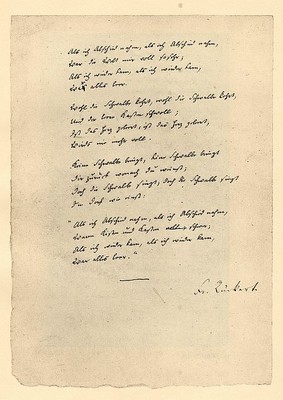 Als ich Abschied nahm, als ich Abschied nahm,
War die Welt mir voll so sehr;
Als ich wieder kam, als ich wieder kam,
War alles leer.
Wohl die Schwalbe kehrt, wohl die Schwalbe kehrt,
Und der leere Kasten schwoll;
Ist das Herz geleert, ist das Herz geleert,
Wird's nie mehr voll.
Keine Schwalbe bringt, keine Schwalbe bringt
Dir zurück wonach du weinst;
Doch die Schwalbe singt, doch die Schwalbe singt
Im Dorf wie einst:
"Als ich Abschied nahm, als ich Abschied nahm,
Waren Kisten und Kasten schwer;
Als ich wieder kam, als ich wieder kam,
War alles leer."
Fr. Rückert.